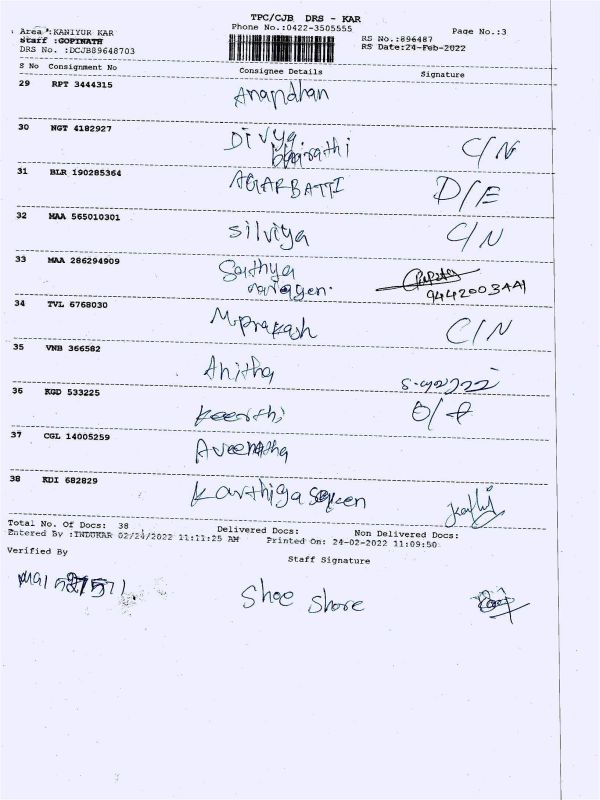 TPC/CJB DRS - KAR
Area :KANIYUR KAR
Phone No.:0422-3505555
Staff :GOPINATH
RS No.:896487
Page No.:3
DRS No. :DCJB89648703
RS Date:24-Feb-2022
S No Consignment No Consignee Details Signature
29 RPT 3444315 Anandhan
30 NGT 4182927 Divya
bharathi C/N
31 BLR 190285364 AGARBATTI D/E
32 MAA 565010301 Silviya C/N
33 MAA 286294909 Sathya
34 TVL 6768030 M.prakash C/N
35 VNB 366582 Anitha
36 KGD 533225 Keerthi
37 CGL 14005259
38 KDI 682829 Karthiga
Total No. Of Docs: 38 Delivered Docs: Non Delivered Docs:
Entered By :INDUKAR 02/24/2022 11:11:25 AM Printed On: 24-02-2022 11:09:50
Verified By Staff Signature
Shoe Shore